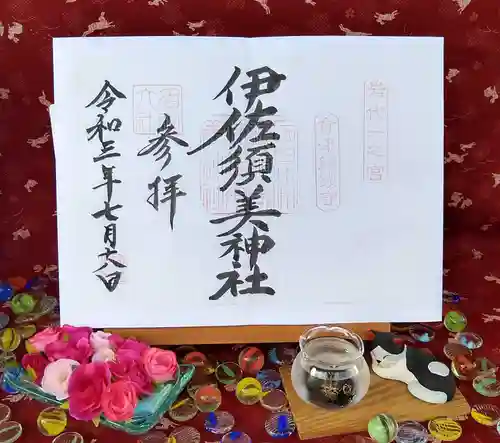 岩代一之宮
伊佐須美神社
参拝
令和三年七月十八日